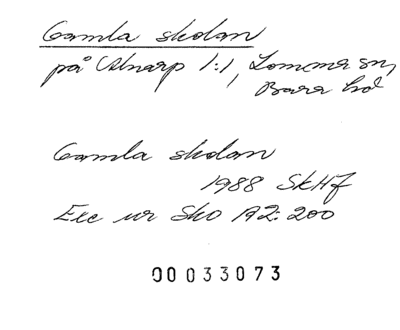 Gamla skolan
på Alnarp 1:1, Lomma sn,
Bara hd
Gamla skolan
1988 SkHf
Exc ur Sko A2:200
00033073